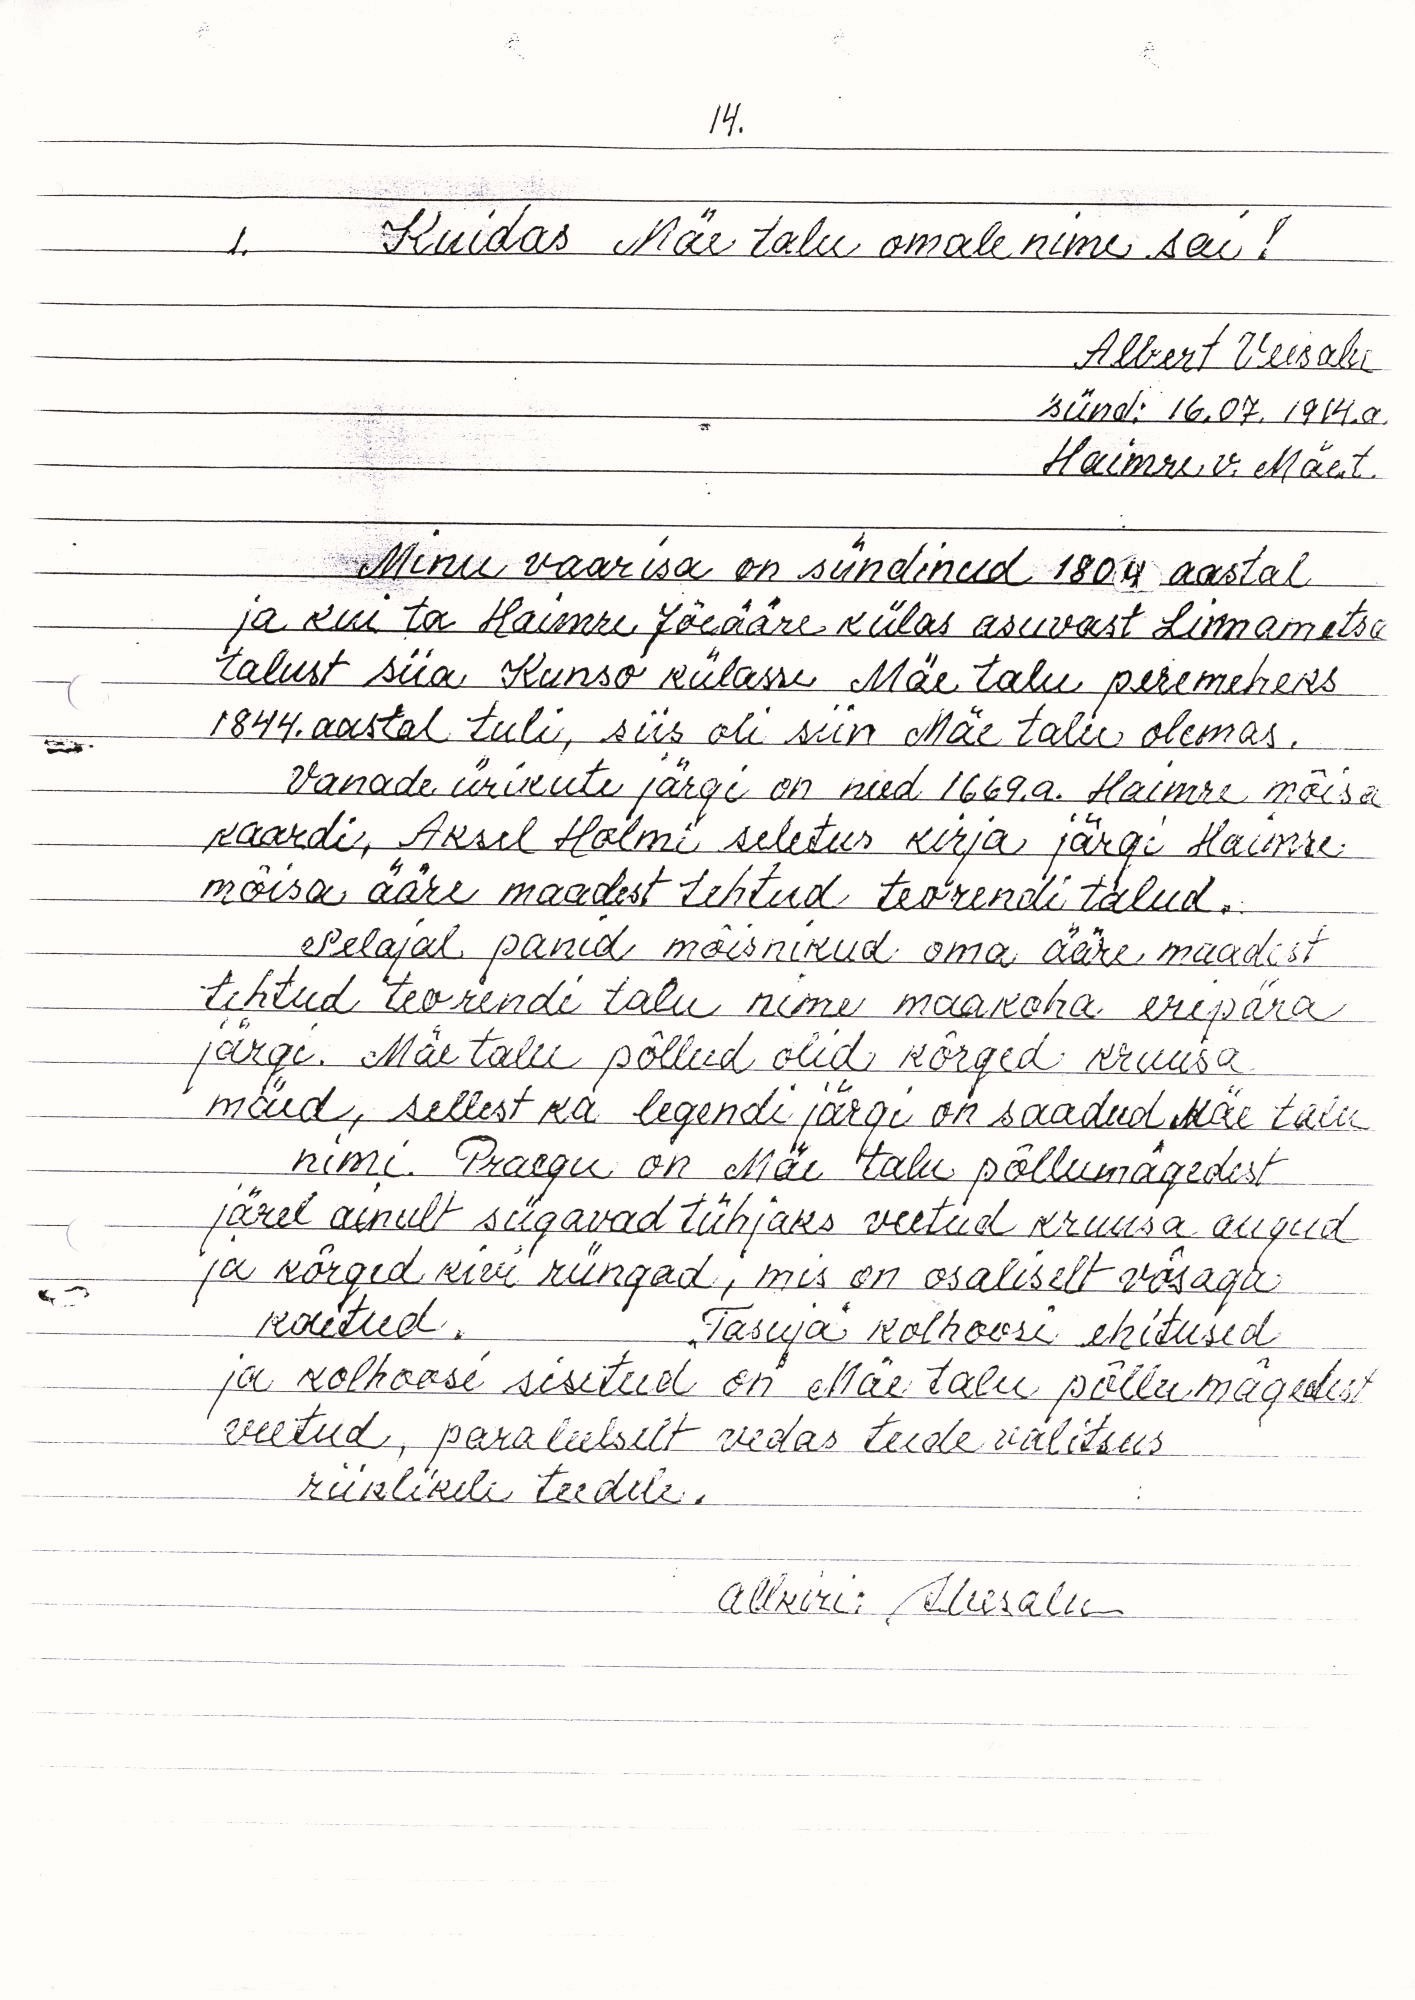 14.
1. Kuidas Mäe talu omale nime sai!
Albert Veisalu
sünd: 16.07. 1914.a.
Haimre v. Mäe t.
Minu vaarisa on sündinud 1804 aastal
ja kui ta Haimre Jõeääre külas asuvast Linnametsa
talust siia Kunso külasse Mäe talu peremeheks
1844. aastal tuli, siis oli siin Mäe talu olemas.
Vanade ürikute järgi on need 1669.a. Haimre mõisa
kaardi, Aksel Holmi seletus kirja järgi Haimre
mõisa ääre maadest tehtud teorendi talud.
Selajal panid mõisnikud oma ääre maadest
tehtud teorendi talu nime maakoha eripära
järgi. Mäe talu põllud olid kõrged kruusa
mäed, sellest ka legendi järgi on saadud Mäe talu
nimi. Praegu on Mäe talu põllumägedest
järel ainult sügavad tühjaks veetud kruusa augud
ja kõrged kivi rüngad, mis on osaliselt võsaga
kaetud. "Tasuja" kolhoosi ehitused
ja kolhoosi sisetud on Mäe talu põllu mägedest
veetud, paraleelselt vedas teede valitsus
riiklikele teedele.
allkiri: